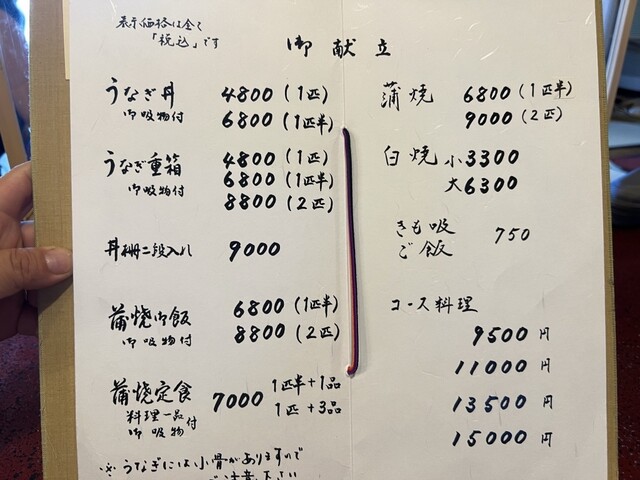 表示価格は全て
「税込」です
御献立
うなぎ丼 4800(1匹)
御吸物付 6800(1匹半)
うなぎ重箱 4800(1匹)
御吸物付 6800(1匹半)
8800(2匹)
丼柵二段入れ 9000
蒲焼御飯 6800(1匹半)
御吸物付 8800(2匹)
蒲焼定食 7000 1匹半+1品
料理一品 1匹+3品
御吸物付
※うなぎには小骨がありますので
ご注意下さい
蒲焼 6800(1匹半)
9000(2匹)
白焼 小3300
大6300
きも吸 750
ご飯
コース料理
9500円
11000円
13500円
15000円